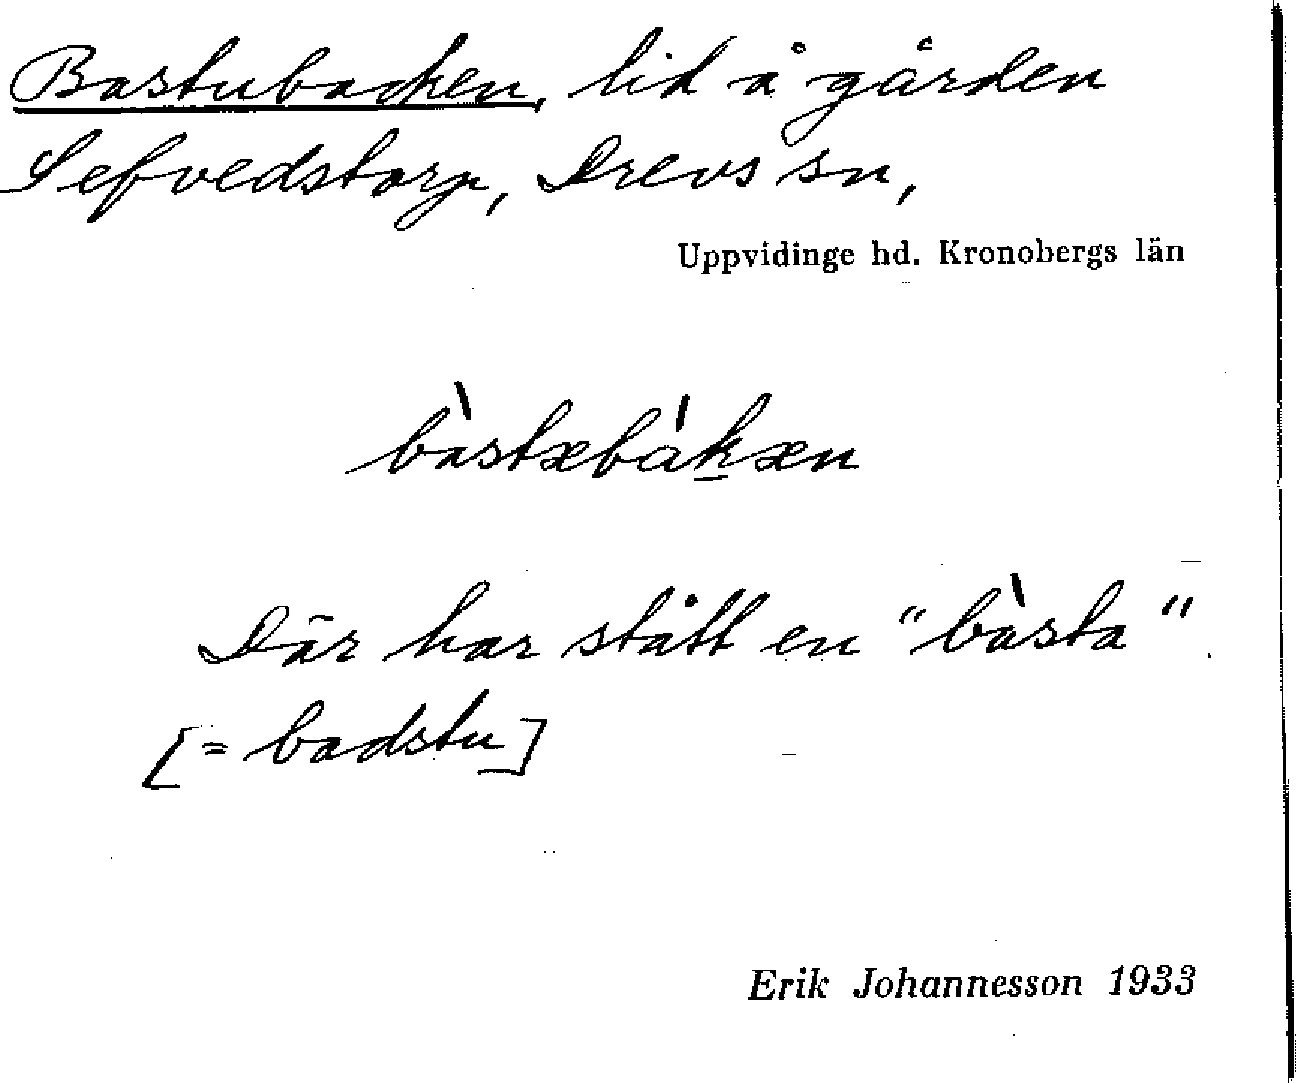 Bastubacken, lid å gården
Sefvedstorp, Drevs sn,
Uppvidinge hd. Kronobergs län
bàstæbákæn
Där har stått en "bàsta".
[= badstu]
Erik Johannesson 1933